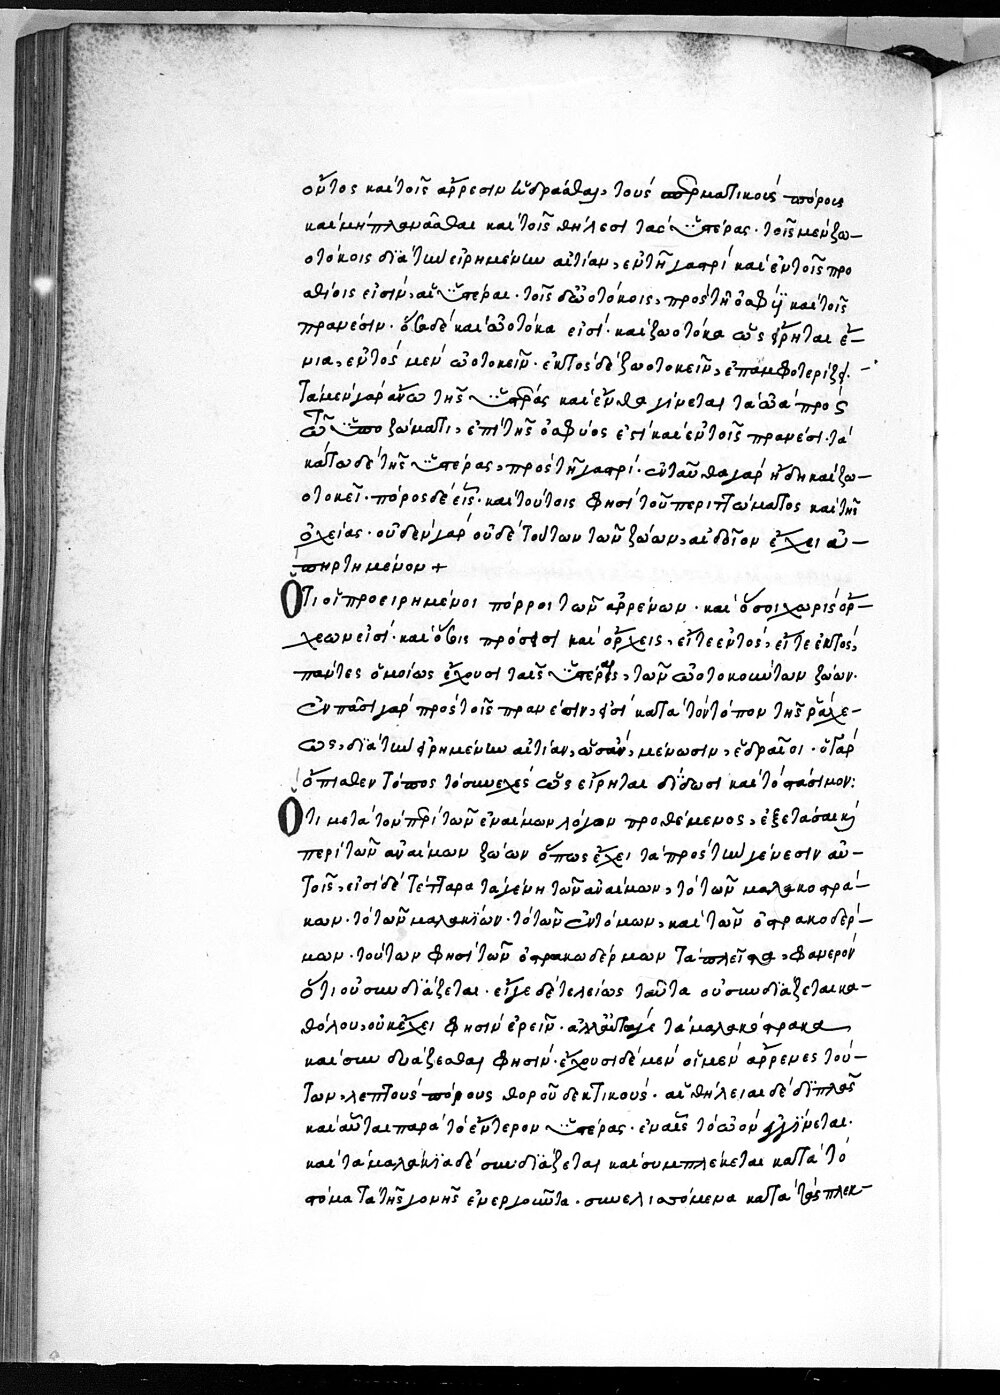 οὕτως καὶ τοῖς ἄρρεσιν ἑδράσθαι, τοὺς σπερματικοὺς πόρους
καὶ μὴ πλανᾶσθαι καὶ τοῖς θήλεσι τὰς ὑστέρας. τοῖς μὲν ζω-
οτόκοις διὰ τὴν εἰρημένην αἰτίαν, ἐν τῇ γαστρὶ καὶ ἐν τοῖς προ
σθίοις εἰσὶν, αἱ ὑστέραι. τοῖς δ' ὠοτόκοις, πρὸς τῇ ὀσφύϊ καὶ τοῖς
πρανέσιν. ὅσα δὲ καὶ ὠοτόκα εἰσὶ. καὶ ζωοτόκα ὡς εἴρηται ἔ-
νια, ἐντὸς μὲν ὠοτοκεῖν. ἐκτὸς δὲ ζωοτοκεῖν, ἐπαμφοτερίζει.
τὰ μὲν γὰρ ἄνω τῆς ὑστέρας καὶ ἔνθα γίνεται τὰ ὠὰ πρὸς
τῷ ὑποζώματι, ἐπὶ τῆς ὀσφύος ἐστὶ καὶ ἐν τοῖς πρανέσι. τὰ
κάτω δὲ τῆς ὑστέρας, πρὸς τῇ γαστρί. ἐνταῦθα γὰρ ἤδη καὶ ζω-
οτοκεῖ. πόρος δὲ εἷς. καὶ τούτοις φησὶ τοῦ περιττώματος καὶ τῆς
ὀχείας. οὐδὲν γὰρ οὐδὲ τούτων τῶν ζώων, αἰδοῖον ἔχει ἀ-
πηρτημένον +
Ὅτι οἱ προειρημένοι πόροι τῶν ἀρρένων. καὶ ὅσοι χωρὶς ὄρ-
χεών εἰσι. καὶ ὅσοις πρόσεισι καὶ ὄρχεις, εἴτε ἐντὸς, εἴτε ἐκτὸς,
πάντες ὁμοίως ἔχουσι ταῖς ὑστέραις, τῶν ὠοτοκούντων ζώων.
ἐν πᾶσι γὰρ πρὸς τοῖς πρανέσιν, εἰσὶ κατὰ τὸν τόπον τῆς ῥάχε-
ως, διὰ τὴν εἰρημένην αἰτίαν, ὡς ἂν, μένωσιν, ἑδραῖοι. ὁ γὰρ
ὄπισθεν τόπος τὸ συνεχὲς ὡς εἴρηται δίδωσι καὶ τὸ στάσιμον:
Ὅτι μετὰ τὸν περὶ τῶν ἐναίμων λόγον προθέμενος, ἐξετάσαι καὶ
περὶ τῶν ἀναίμων ζώων ὅπως ἔχει τὰ πρὸς τὴν γένεσιν αὐ-
τοῖς, εἰσὶ δὲ τέτταρα τὰ γένη τῶν ἀναίμων, τὸ τῶν μαλακοστρά-
κων. τὸ τῶν μαλακίων. τὸ τῶν ἐντόμων, καὶ τῶν ὀστρακοδέρ-
μων. τούτων φησὶ τῶν ὀστρακοδέρμων τὰ πλεῖστα, φανερὸν
ὅτι οὐ συνδϊάζεται. εἴγε δὲ τελείως ταῦτα οὐ συνδϊάζεται κα-
θόλου, οὐκ ἔχει φησὶν ἐρεῖν. ἀλλ' αὐτά γε τὰ μαλακόστρακα
καὶ συνδυάζεσθαι φησίν. ἔχουσι δὲ μὲν οἱ μὲν ἄρρενες τού-
των, λεπτοὺς πόρους θοροῦ δεκτικούς. αἱ θήλειαι δὲ διπλᾶς
καὶ αὗται παρὰ τὸ ἔντερον ὑστέρας. ἐν αἷς τὸ ὠὸν γίνεται.
καὶ τὰ μαλάκια δὲ συνδϊάζεται καὶ συμπλέκεται κατὰ τὸ
στόμα τὰ τῆς γονῆς ἐνεργοῦντα. συνελισσόμενα κατὰ τὰς πλεκ-